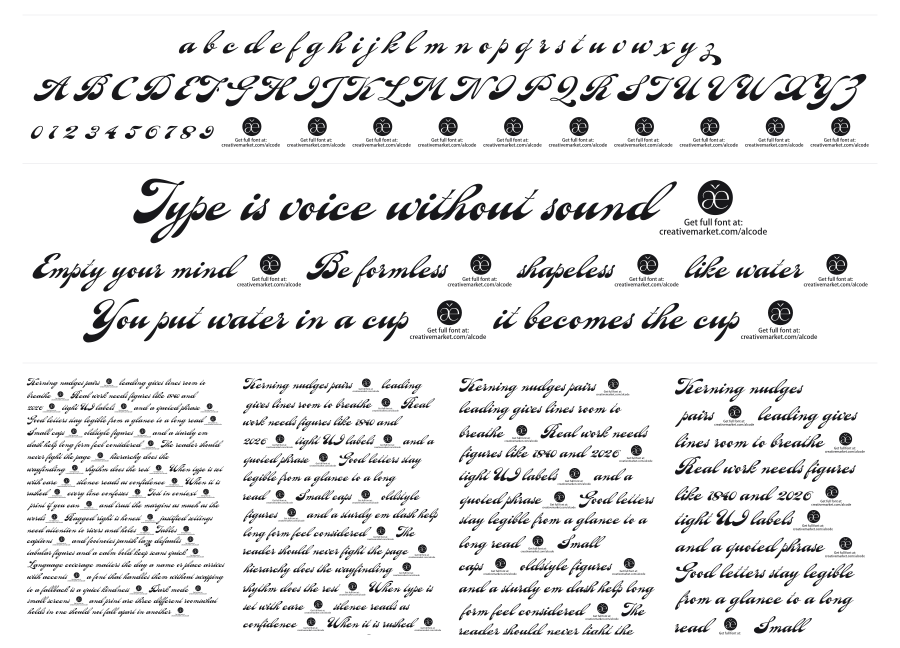 a b c d e f g h i j k l m n o p q r s t u v w x y z
A B C D E F G H I J K L M N O P Q R S T U V W X Y Z
0 1 2 3 4 5 6 7 8 9 æ æ æ æ æ æ æ æ æ æ
Get full font at: Get full font at: Get full font at: Get full font at: Get full font at: Get full font at: Get full font at: Get full font at: Get full font at: Get full font at:
creativemarket.com/alcode creativemarket.com/alcode creativemarket.com/alcode creativemarket.com/alcode creativemarket.com/alcode creativemarket.com/alcode creativemarket.com/alcode creativemarket.com/alcode creativemarket.com/alcode creativemarket.com/alcode
Type is voice without sound æ
Get full font at:
creativemarket.com/alcode
Empty your mind æ Be formless æ shapeless æ like water æ
Get full font at: Get full font at: Get full font at: Get full font at:
creativemarket.com/alcode creativemarket.com/alcode creativemarket.com/alcode creativemarket.com/alcode
You put water in a cup æ it becomes the cup æ
Get full font at: Get full font at:
creativemarket.com/alcode creativemarket.com/alcode
Kerning nudges pairs leading gives lines room to
breathe Real work needs figures like 1840 and
2026 light UI labels and a quoted phrase
Good letters stay legible from a glance to a long read
Small caps oldstyle figures and a sturdy em
dash help long form feel considered The reader should
never fight the page hierarchy does the
wayfinding rhythm does the rest When type is set
with care silence reads as confidence When it is
rushed every line confesses Test in context
print if you can and trust the margins as much as the
words Ragged right is honest justified settings
need attention to rivers and holes Tables
captions and footnotes punish lazy defaults
tabular figures and a calm bold keep scans quick
Language coverage matters the day a name or place arrives
with accents a font that handles them without swapping
to a fallback is quiet kindness Dark mode
small screens and print are three different rooms what
holds in one should not fall apart in another
Kerning nudges pairs leading
gives lines room to breathe Real
work needs figures like 1840 and
2026 light UI labels and a
quoted phrase Good letters stay
legible from a glance to a long
read Small caps oldstyle
figures and a sturdy em dash help
long form feel considered The
reader should never fight the page
hierarchy does the wayfinding
rhythm does the rest When type is
set with care silence reads as
confidence When it is rushed
Kerning nudges pairs
leading gives lines room to
breathe Real work needs
figures like 1840 and 2026
light UI labels and a
quoted phrase Good letters
stay legible from a glance to a
long read Small
caps oldstyle figures
and a sturdy em dash help long
form feel considered The
reader should never fight the
Kerning nudges
pairs leading gives
lines room to breathe
Real work needs figures
like 1840 and 2026
light UI labels
and a quoted phrase
Good letters stay legible
from a glance to a long
read Small